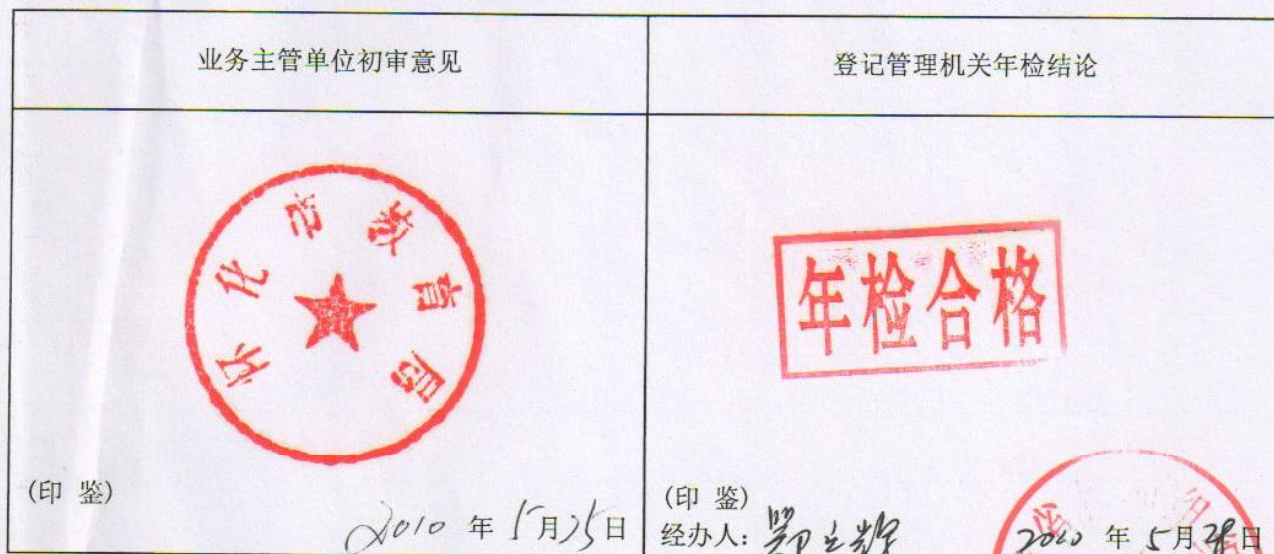 业务主管单位初审意见
登记管理机关年检结论
怀化市教育局
(印 鉴)
2010 年 5月25日
年检合格
(印 鉴)
经办人:
2010 年 5月 日